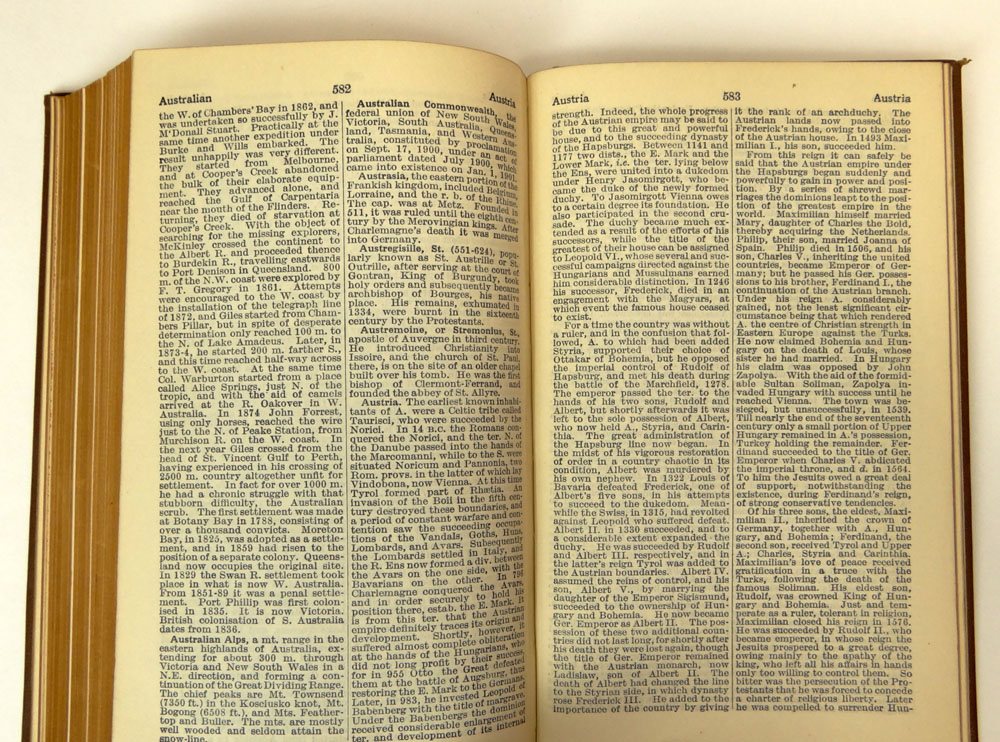 Australian
582
Austria
the W. of Chambers' Bay in 1862, and
was undertaken so successfully by J.
M'Donall Stuart. Practically at the
same time another expedition under
Burke and Wills embarked. The
result unhappily was very different.
They started from Melbourne,
and at Cooper's Creek abandoned
the bulk of their elaborate equip-
ment. They advanced alone, and
reached the Gulf of Carpentaria
near the mouth of the Flinders. Re-
turning, they died of starvation at
Cooper's Creek. With the object of
searching for the missing explorers,
McKinley crossed the continent to
the Albert R. and proceeded thence
to Burdekin R., travelling eastwards
to Port Denison in Queensland. 800
m. of the N.W. coast were explored by
F. T. Gregory in 1861. Attempts
were encouraged to the W. coast by
the installation of the telegraph line
of 1872, and Giles started from Cham-
bers Pillar, but in spite of desperate
determination only reached 100 m. to
the N. of Lake Amadeus. Later, in
1873-4, he started 200 m. farther S.,
and this time reached half-way across
to the W. coast. At the same time
Col. Warburton started from a place
called Alice Springs, just N. of the
tropic, and with the aid of camels
arrived at the R. Oakover in W.
Australia. In 1874 John Forrest,
using only horses, reached the wire
just to the N. of Peake Station, from
Murchison R. on the W. coast. In
the next year Giles crossed from the
head of St. Vincent Gulf to Perth,
having experienced in his crossing of
2500 m. country altogether unfit for
settlement. In fact for over 1000 m.
he had a chronic struggle with that
stubborn difficulty, the Australian
scrub. The first settlement was made
at Botany Bay in 1788, consisting of
over a thousand convicts. Moreton
Bay, in 1825, was adopted as a settle-
ment, and in 1859 had risen to the
position of a separate colony. Queens-
land now occupies the original site.
In 1829 the Swan R. settlement took
place in what is now W. Australia.
From 1851-89 it was a penal settle-
ment. Port Phillip was first colon-
ised in 1835. It is now Victoria.
British colonisation of S. Australia
dates from 1836.
Australian Alps, a mt. range in the
eastern highlands of Australia, ex-
tending for about 300 m. through
Victoria and New South Wales in a
N.E. direction, and forming a con-
tinuation of the Great Dividing Range.
The chief peaks are Mt. Townsend
(7350 ft.) in the Kosciusko knot, Mt.
Bogong (6508 ft.), and Mts. Feather-
top and Buller. The mts. are mostly
well wooded and seldom attain the
snow-line.
Australian Commonwealth, the
federal union of New South Wales,
Victoria, South Australia, Queens-
land, Tasmania, and Western Aus-
tralia, constituted by proclamation
on Sept. 17, 1900, under an act of
parliament dated July 1900, which
came into existence on Jan. 1, 1901.
Austrasia, the eastern portion of the
Frankish kingdom, included Belgium,
Lorraine, and the r. b. of the Rhine.
The cap. was at Metz. Founded in
511, it was ruled until the eighth cen-
tury by the Merovingian kings. After
Charlemagne's death it was merged
into Germany.
Austregisile, St. (551-624), popu-
larly known as St. Austrille or St.
Outrille, after serving at the court of
Gontran, King of Burgundy, took
holy orders and subsequently became
archbishop of Bourges, his native
place. His remains, exhumated in
1334, were burnt in the sixteenth
century by the Protestants.
Austremoine, or Stremonius, St.,
apostle of Auvergne in third century.
He introduced Christianity into
Issoire, and the church of St. Paul,
there, is on the site of an older chapel
built over his tomb. He was the first
bishop of Clermont-Ferrand, and
founded the abbey of St. Allyre.
Austria. The earliest known inhabi-
tants of A. were a Celtic tribe called
Taurisci, who were succeeded by the
Norici. In 14 B.C. the Romans con-
quered the Norici, and the ter. N. of
the Danube passed into the hands of
the Marcomanni, while to the S. were
situated Noricum and Pannonia, two
Rom. provs. in the latter of which lay
Vindobona, now Vienna. At this time
Tyrol formed part of Rhætia. An
invasion of the Boii in the fifth cen-
tury destroyed these boundaries, and
a period of constant warfare and con-
tention saw the succeeding occupa-
tions of the Vandals, Goths, Huns,
Lombards, and Avars. Subsequently
the Lombards settled in Italy, and
the R. Ens now formed a div. between
the Avars on the one side, with the
Bavarians on the other. In 796
Charlemagne conquered the Avars,
and in order securely to hold his
position there, estab. the E. Mark. It
is from this ter. that the Austrian
empire definitely traces its origin and
development. Shortly, however, it
suffered almost complete obliteration
at the hands of the Hungarians, who
did not long profit by their success,
for in 955 Otto the Great defeated
them at the battle of Augsburg, thus
restoring the E. Mark to the Germans.
Later, in 983, he invested Leopold of
Babenberg with the title of margrave.
Under the Babenbergs the dominion
received considerable enlargement of
ter. and development of its internal
Austria
583
Austria
strength. Indeed, the whole progress
of the Austrian empire may be said to
be due to this great and powerful
house, and to the succeeding dynasty
of the Hapsburgs. Between 1141 and
1177 two dists., the E. Mark and the
Lower Mark, i.e. the ter. lying below
the Ens, were united into a dukedom
under Henry Jasomirgott, who be-
came the duke of the newly formed
duchy. To Jasomirgott Vienna owes
to a certain degree its foundation. He
also participated in the second cru-
sade. The duchy became much ex-
tended as a result of the efforts of his
successors, while the title of the
greatest of their house can be assigned
to Leopold VI., whose several and suc-
cessful campaigns directed against the
Hungarians and Mussulmans earned
him considerable distinction. In 1246
his successor, Frederick, died in an
engagement with the Magyars, at
which event the famous house ceased
to exist.
For a time the country was without
a ruler, and in the confusion that fol-
lowed, A. to which had been added
Styria, supported their choice of
Ottakar of Bohemia, but he opposed
the imperial control of Rudolf of
Hapsburg, and met his death during
the battle of the Marchfield, 1278.
The emperor passed the ter. to the
hands of his two sons, Rudolf and
Albert, but shortly afterwards it was
left to the sole possession of Albert,
who now held A., Styria, and Carin-
thia. The great administration of
the Hapsburg line now began. In
the midst of his vigorous restoration
of order in a country chaotic in its
condition, Albert was murdered by
his own nephew. In 1322 Louis of
Bavaria defeated Frederick, one of
Albert's five sons, in his attempts
to succeed to the dukedom. Mean-
while the Swiss, in 1315, had revolted
against Leopold who suffered defeat.
Albert II. in 1330 succeeded, and to
a considerable extent expanded the
duchy. He was succeeded by Rudolf
and Albert III. respectively, and in
the latter's reign Tyrol was added to
the Austrian boundaries. Albert IV.
assumed the reins of control, and his
son, Albert V., by marrying the
daughter of the Emperor Sigismund,
succeeded to the ownership of Hun-
gary and Bohemia. He now became
Ger. Emperor as Albert II. The pos-
session of these two additional coun-
tries did not last long, for shortly after
his death they were lost again, though
the title of Ger. Emperor remained
with the Austrian monarch, now
Ladislaw, son of Albert II. The
death of Albert had changed the line
to the Styrian side, in which dynasty
rose Frederick III. He added to the
importance of the country by giving
it the rank of an archduchy. The
Austrian lands now passed into
Frederick's hands, owing to the close
of the Austrian house. In 1493 Maxi-
milian I., his son, succeeded him.
From this reign it can safely be
said that the Austrian empire under
the Hapsburgs began suddenly and
powerfully to gain in power and posi-
tion. By a series of shrewd mar-
riages the dominions leapt to the posi-
tion of the greatest empire in the
world. Maximilian himself married
Mary, daughter of Charles the Bold,
thereby acquiring the Netherlands.
Philip, their son, married Joanna of
Spain. Philip died in 1506, and his
son, Charles V., inheriting the united
countries, became Emperor of Ger-
many; but he passed his Ger. posses-
sions to his brother, Ferdinand I., the
continuation of the Austrian branch.
Under his reign A. considerably
gained, not the least significant cir-
cumstance being that which rendered
A. the centre of Christian strength in
Eastern Europe against the Turks.
He now claimed Bohemia and Hun-
gary on the death of Louis, whose
sister he had married. In Hungary
his claim was opposed by John
Zapolya. With the aid of the formid-
able Sultan Soliman, Zapolya in-
vaded Hungary with success until he
reached Vienna. The town was be-
sieged, but unsuccessfully, in 1539.
Till nearly the end of the seventeenth
century only a small portion of Upper
Hungary remained in A.'s possession,
Turkey holding the remainder. Fer-
dinand succeeded to the title of Ger.
Emperor when Charles V. abdicated
the imperial throne, and d. in 1564.
To him the Jesuits owed a great deal
of support, notwithstanding the
existence, during Ferdinand's reign,
of strong conservative tendencies.
Of his three sons, the eldest, Maxi-
milian II., inherited the crown of
Germany, together with A., Hun-
gary, and Bohemia; Ferdinand, the
second son, received Tyrol and Upper
A.; Charles, Styria and Carinthia.
Maximilian's love of peace received
gratification in a truce with the
Turks, following the death of the
famous Soliman. His eldest son,
Rudolf, was crowned King of Hun-
gary and Bohemia. Just and tem-
perate as a ruler, tolerant in religion,
Maximilian closed his reign in 1576.
He was succeeded by Rudolf II., who
became emperor, in whose reign the
Jesuits prospered to a great degree,
owing mainly to the apathy of the
king, who left all his affairs in hands
only too willing to control them. So
bitter was the persecution of the Pro-
testants that he was forced to concede
a charter of religious liberty. Later
he was compelled to surrender Hun-